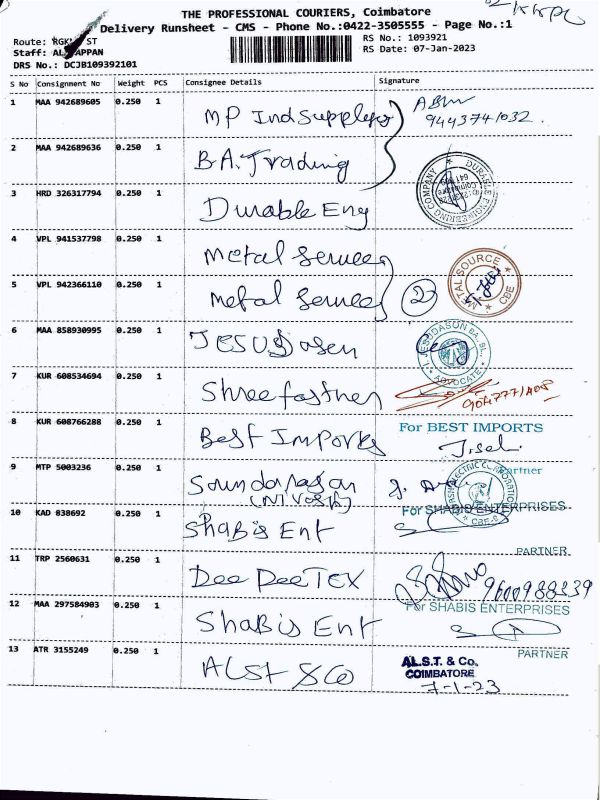 THE PROFESSIONAL COURIERS, Coimbatore
Delivery Runsheet - CMS - Phone No.:0422-3505555 - Page No.:1
Route: ST
RS No.: 1093921
Staff: APPAN
RS Date: 07-Jan-2023
DRS No.: DCJB109392101
S No Consignment No Weight PCS Consignee Details Signature
1 MAA 942689605 0.250 1 MP Ind Suppliers
9443741032.
2 MAA 942689636 0.250 1 B.A. Trading
DURABLE ENGINEERING COMPANY
3 HRD 326317794 0.250 1 Durable Eng
4 VPL 941537798 0.250 1 Metal Services
5 VPL 942366110 0.250 1 Metal Services 2 METAL SOURCE CBE
6 MAA 858930995 0.250 1 JESUDasen
I. JESUDASON BA. BL. ADVOCATE
7 KUR 608534694 0.250 1 Shree fastner
8 KUR 608766288 0.250 1 Best Imports
For BEST IMPORTS
Partner
9 MTP 5003236 0.250 1 Soundarajan
10 KAD 838692 0.250 1 ShaBis Ent
For SHABIS ENTERPRISES
PARTNER
11 TRP 2560631 0.250 1 Dee Dee TEX
9600988339
12 MAA 297584903 0.250 1 ShaBis Ent
For SHABIS ENTERPRISES
PARTNER
13 ATR 3155249 0.250 1 ALST & Co
AL.S.T. & Co.
COIMBATORE
7-1-23